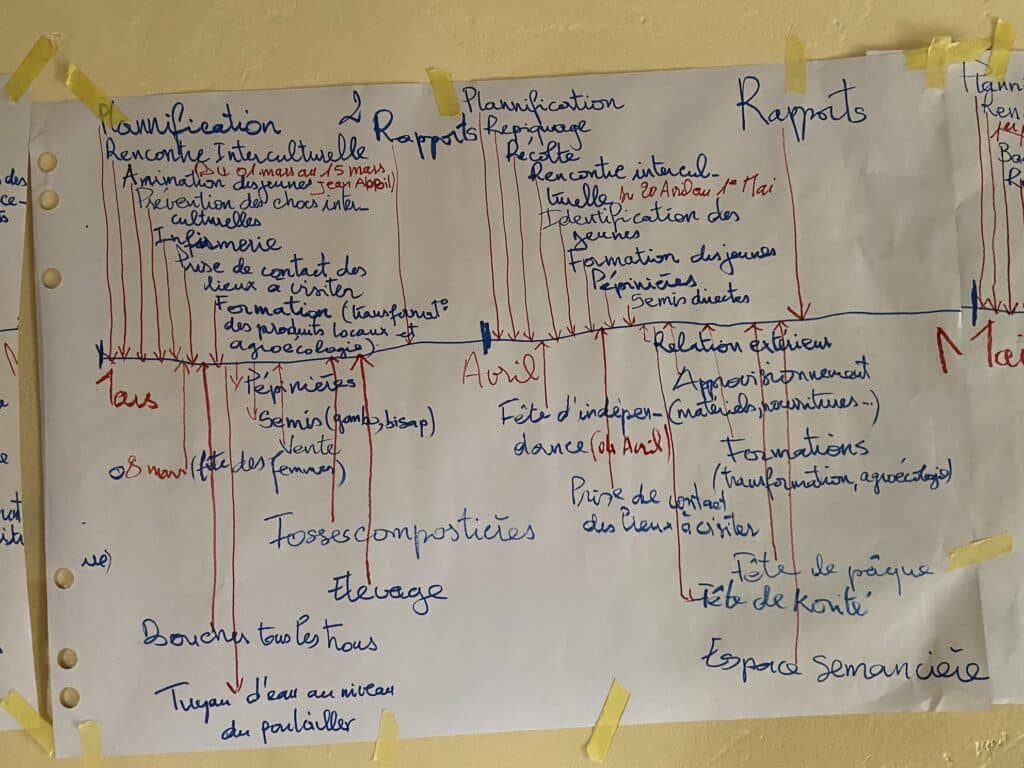 Plannification
2
Rapports
Rencontre Interculturelle
(Du 01 mars au 15 mars
Animation des jeunes Jean April)
Prévention des chocs inter-
culturelles
Infirmerie
Prise de contact des
lieux à visiter
Formation (transformat°
des produits locaux et
agroécologie)
Mars
Pépinières
Semis (gombo, bisap)
Vente
08 mars (fête des femmes)
Fosses compostières
Elevage
Boucher tous les trous
Tuyau d'eau au niveau
du poulailler
Plannification
Repiquage
Récolte
Rencontre intercul-
turelle 20 Avril au 1er Mai
Identification des
jeunes
Formation des jeunes
Pépinières
Semis directes
Rapports
Avril
Relation extérieur
Approvisionnement
(matériels, nourritures...)
Fête d'indépen-
dance (04 Avril)
Formations
(transformation, agroécologie)
Prise de contact
des lieux à visiter
Fête de pâque
Fête de Korité
Espace semancière
Mai